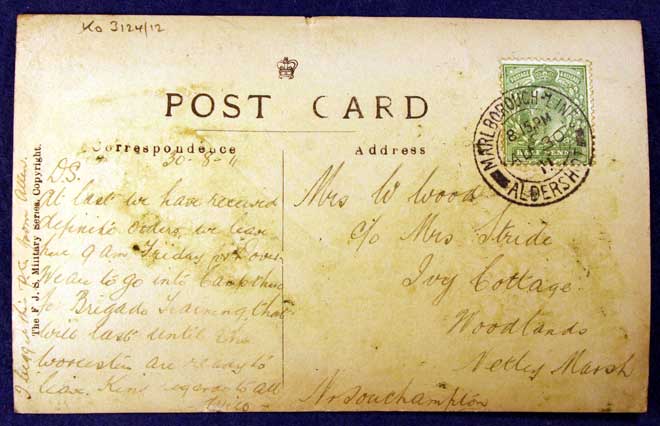 Ko 3124/12
POST CARD
Correspondence
Address
30-8-11
The F. J. S. Military Series, Copyright.
D.S.
At last we have received
definite orders, we leave
here 9 am Friday for
We are to go into Camp there
for Brigade Training that
will last until the
Worcesters are ready to
leave. Kind regards to all
Mrs W Wood
c/o Mrs Stride
Ivy Cottage
Woodlands
Netley Marsh
Nr Southampton
MARLBOROUGH LINES
8.15 PM
AU 30
11
ALDERSHOT